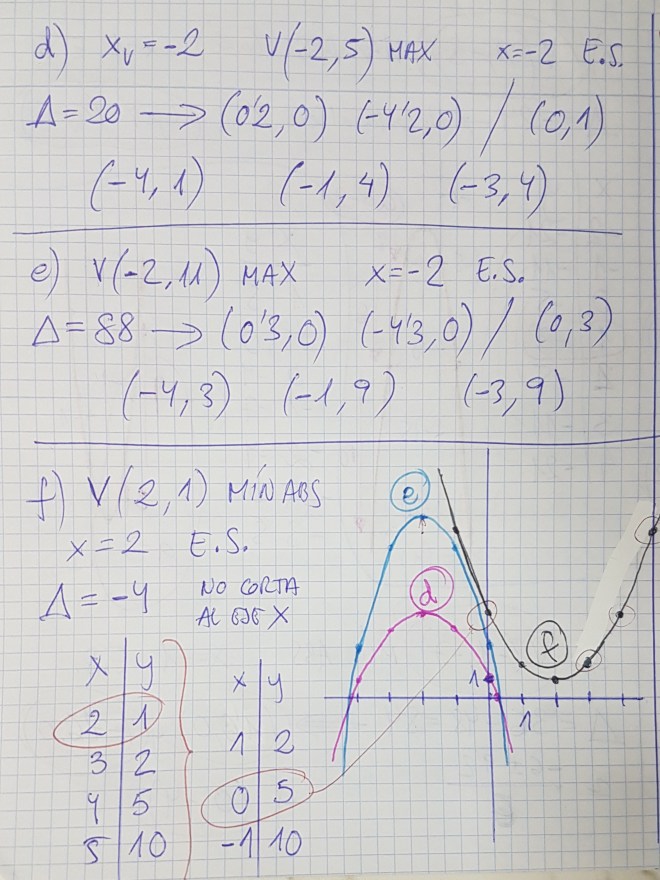 d) xᵥ = -2 V(-2,5) MAX x=-2 E.S.
Δ = 20 → (0'2,0) (-4'2,0) / (0,1)
(-4,1) (-1,4) (-3,4)
e) V(-2,11) MAX x=-2 E.S.
Δ = 88 → (0'3,0) (-4'3,0) / (0,3)
(-4,3) (-1,9) (-3,9)
f) V(2,1) MÍN ABS
x=2 E.S.
Δ = -4 NO CORTA
AL EJE X
x y
2 1
3 2
4 5
5 10
x y
1 2
0 5
-1 10
e
d
f
1
1